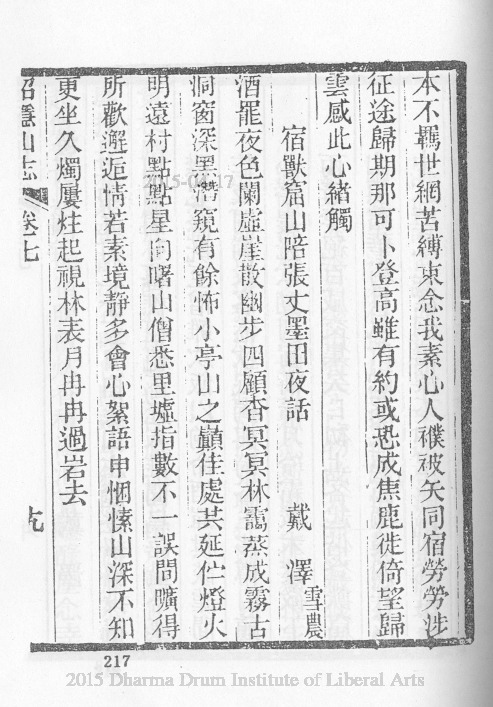 本不羈世網苦縛束念我素心人襆被矢同宿勞勞涉
征途歸期那可卜登高雖有約或恐成焦鹿徙倚望歸
雲感此心緒觸
宿獸窟山陪張丈墨田夜話 戴澤雪農
酒罷夜色闌虛崖散幽步四顧杳冥冥林靄蒸成霧古
洞窗深黑潛窺有餘怖小亭山之巔佳處共延佇燈火
明遠村點點星向曙山僧悉里墟指數不一誤間曠得
所歡邂逅情若素境靜多會心絮語申悃愫山深不知
更坐久燭屢炷起視林表月冉冉過岩去
招隱山志 卷七
217
2015 Dharma Drum Institute of Liberal Arts